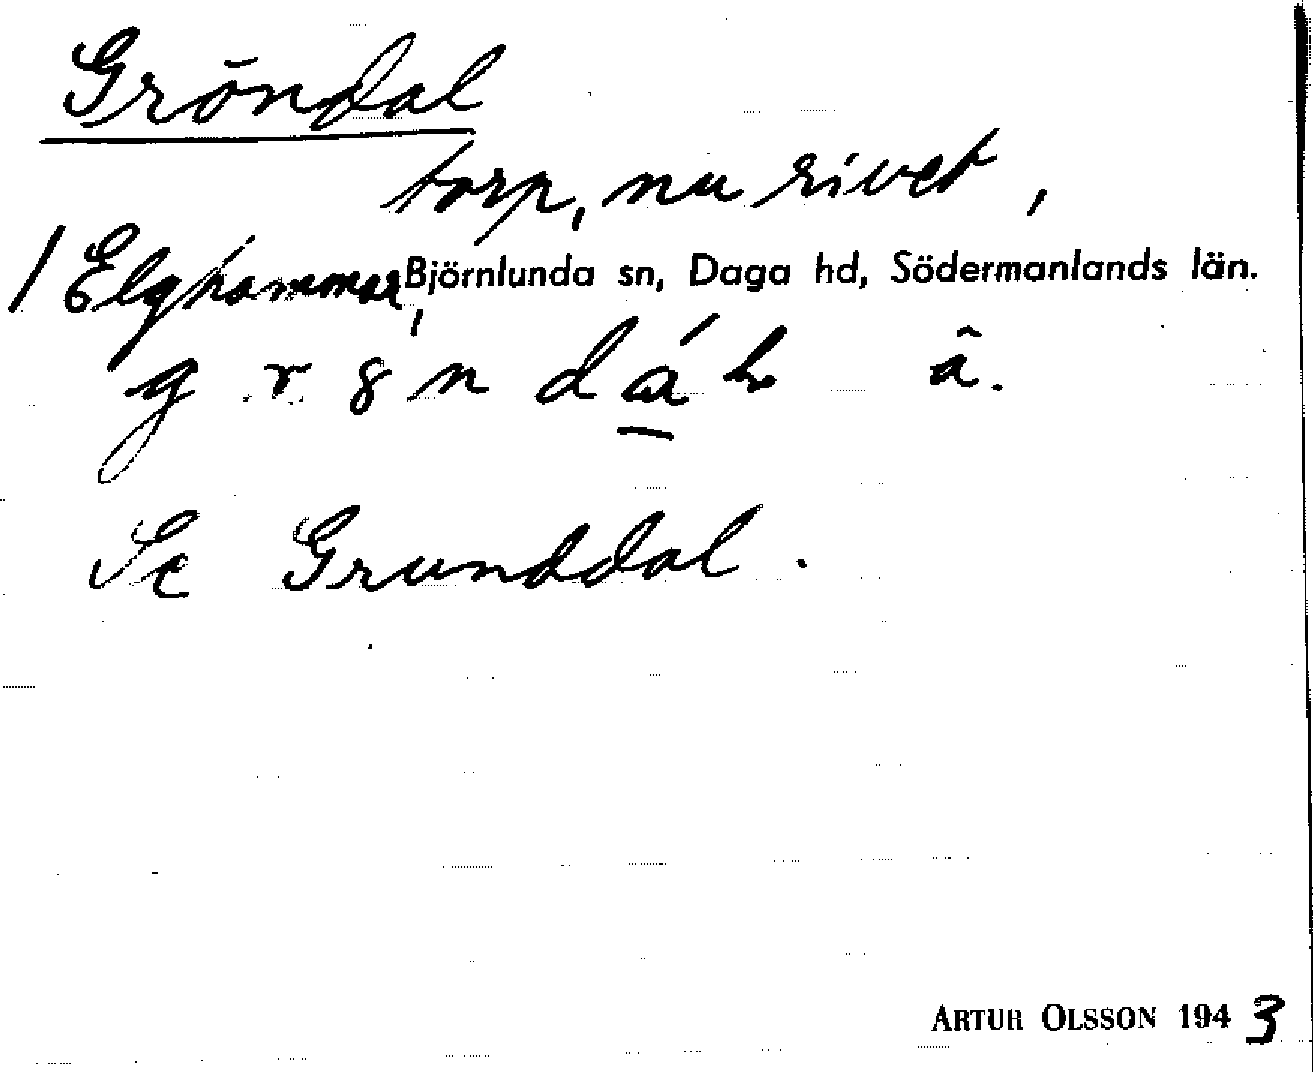 Gröndal
torp, nu rivet,
/ Elghammar, Björnlunda sn, Daga hd, Södermanlands län.
g r 8 n d á l â.
Se Grunddal.
ARTUR OLSSON 1943